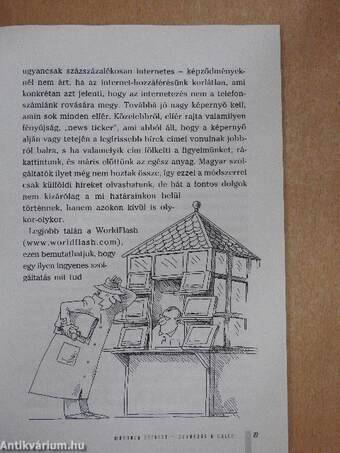 ugyancsak százszázalékosan internetes – képződmények-
nél nem árt, ha az internet-hozzáférésünk korlátlan, ami
konkrétan azt jelenti, hogy az internetezés nem a telefon-
számlánk rovására megy. Továbbá jó nagy képernyő kell,
amin sok minden elfér. Közelebbről, elfér rajta valamilyen
fényújság, „news ticker”, ami abból áll, hogy a képernyő
alján vagy tetején a legfrissebb hírek címei vonulnak jobb-
ról balra, s ha valamelyik cím fölkelti a figyelmünket, rá-
kattintunk, és máris előttünk az egész anyag. Magyar szol-
gáltatók ilyet még nem hoztak össze, így ezzel a módszerrel
csak külföldi híreket olvashatunk, de hát a fontos dolgok
nem kizárólag a mi határainkon belül
történnek, hanem azokon kívül is oly-
kor-olykor.
Legjobb talán a WorldFlash
(www.worldflash.com),
ezen bemutathatjuk, hogy
egy ilyen ingyenes szol-
gáltatás mit tud
Antikvárium.hu